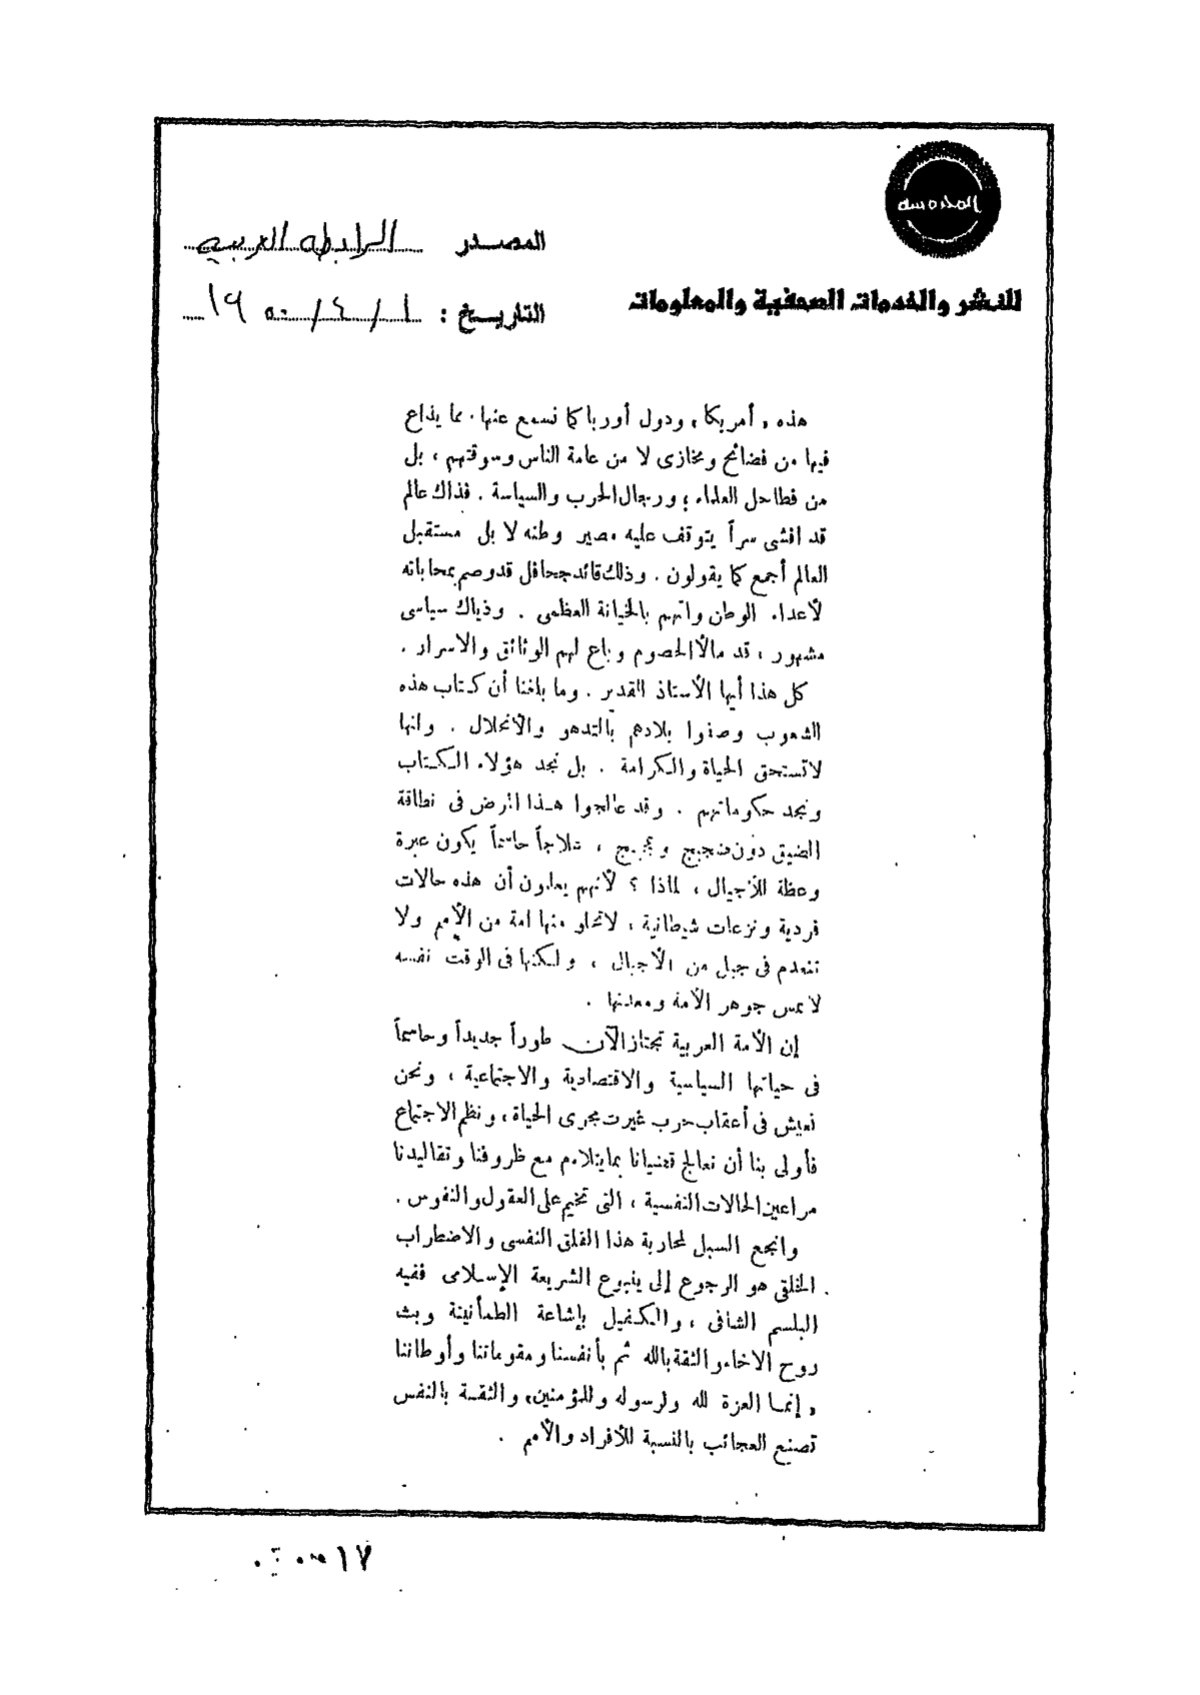 المحروسة
المصدر الرابطة العربية
للنشر والخدمات الصحفية والمعلومات
التاريخ : ١ / ٤ / ١٩٥٠
هذه « أمريكا » ودول أوربا كما نسمع عنها . مما يذاع
فيها من فضائح ومخازى لا من عامة الناس وسوقتهم ، بل
من فطاحل العلماء ؛ ورجال الحرب والسياسة . فذاك عالم
قد افشى سراً يتوقف عليه مصير وطنه لا بل مستقبل
العالم أجمع كما يقولون . وذلك قائد جحافل قد وصم بمحاباته
لأعداء الوطن واتهم بالخيانة العظمى . وذياك سياسى
مشهور ، قد مالأ الخصوم وباع لهم الوثائق والاسرار .
كل هذا أيها الأستاذ القدير . وما بلغنا أن كتاب هذه
الشعوب وصفوا بلادهم بالتدهو والانحلال . وانها
لا تستحق الحياة والكرامة . بل نجد هؤلاء الكتاب
ونجد حكوماتهم . وقد عالجوا هذا المرض فى نطاقة
الضيق دون ضجيج و ، علاجاً حاسماً يكون عبرة
وعظة للأجيال ، لماذا ؟ لأنهم يعلمون أن هذه حالات
فردية ونزعات شيطانية ، لا تخلو منها امة من الأمم ولا
تنعدم فى جيل من الأجيال ، ولكنها فى الوقت نفسه
لا تمس جوهر الأمة ومعدنها .
إن الأمة العربية تجتاز الآن طوراً جديداً وحاسماً
فى حياتها السياسية والاقتصادية والاجتماعية ، ونحن
نعيش فى أعقاب حرب غيرت مجرى الحياة ، ونظم الاجتماع
فأولى بنا أن نعالج قضيانا بما يتلاءم مع ظروفنا وتقاليدنا
مراعين الحالات النفسية ، التى تخيم على العقول والنفوس .
وانجع السبل لمحاربة هذا القلق النفسى والاضطراب
الخلقى هو الرجوع إلى ينبوع الشريعة الإسلامى ففيه
البلسم الشافى ، والكفيل بإشاعة الطمأنينة وبث
روح الاخاء والثقة بالله ثم بأنفسنا ومقوماتنا وأوطاننا
« إنما العزة لله ولرسوله وللمؤمنين » والثقة بالنفس
تصنع العجائب بالنسبة للأفراد والأمم .